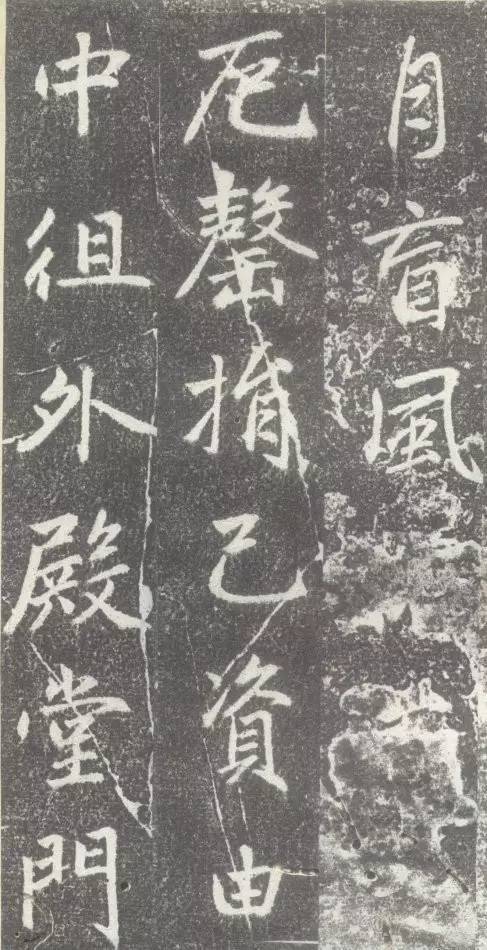 月盲風
厄罄捐己資由
中徂外殿堂門